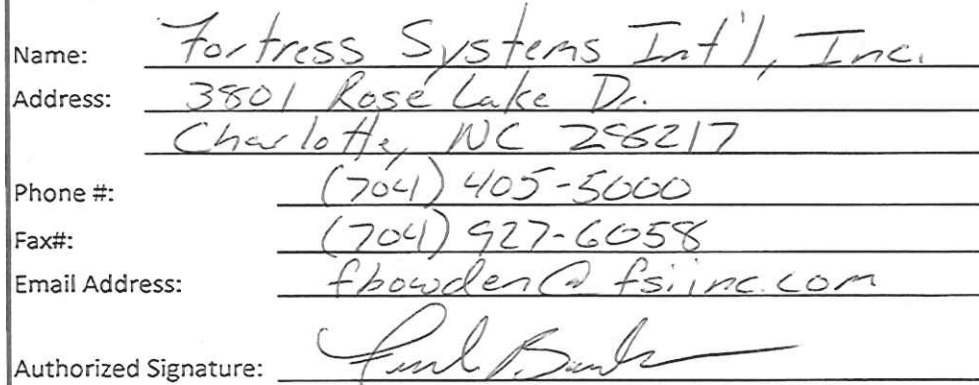 Name: Fortress Systems Int'l, Inc.
Address: 3801 Rose Lake Dr.
Charlotte, NC 286217
Phone #: (704) 405-5000
Fax#: (704) 927-6058
Email Address: fbowden@fsiinc.com
Authorized Signature: